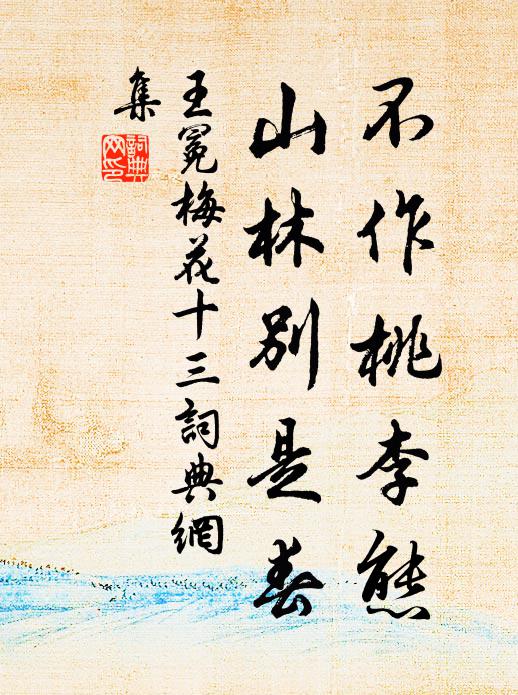 不作桃李態
山林別是春
王冕梅花十三詞典網
集
詞典
网印